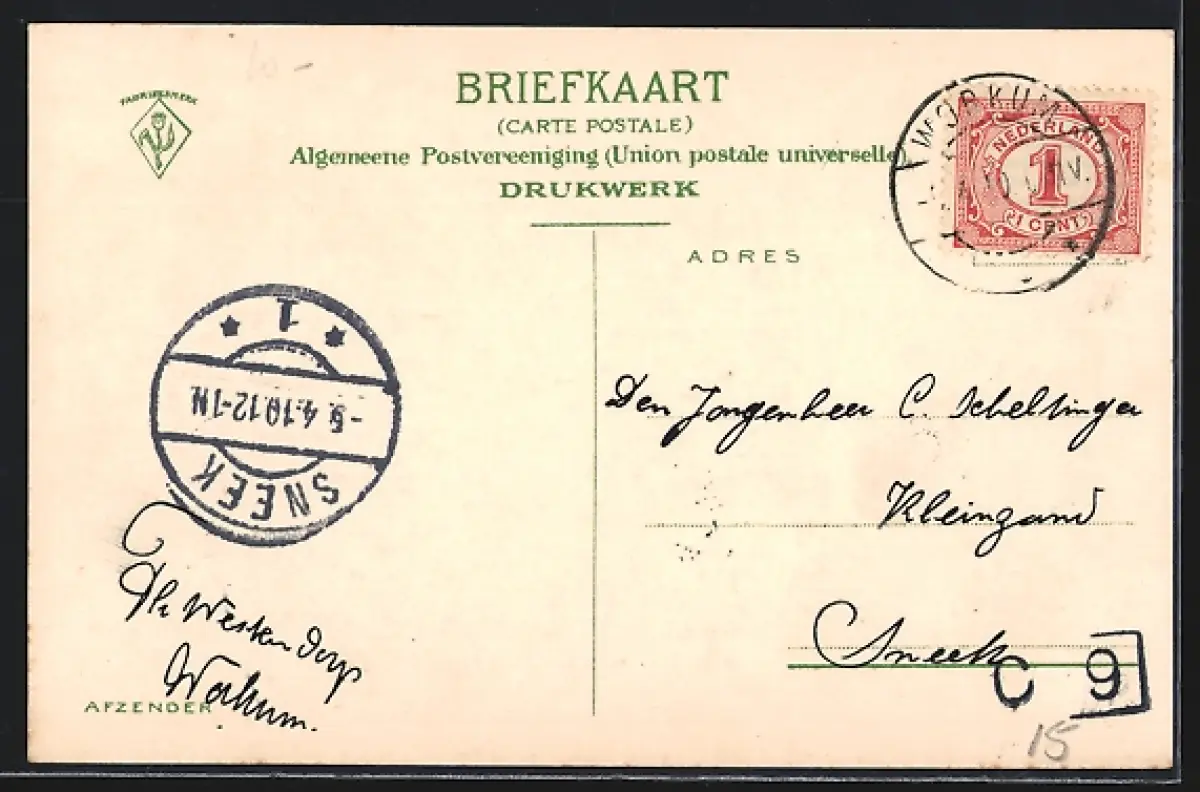 FABRIEKSMERK
BRIEFKAART
(CARTE POSTALE)
Algemeene Postvereeniging (Union postale universelle)
DRUKWERK
WORKUM
NEDERLAND
1
1 CENT
ADRES
1
-5.4.10.12-1N
SNEEK
Den Jongenheer C. Scheltinga
Kleinzand
Sneek
C 9
15
Westendorp
Workum.
AFZENDER